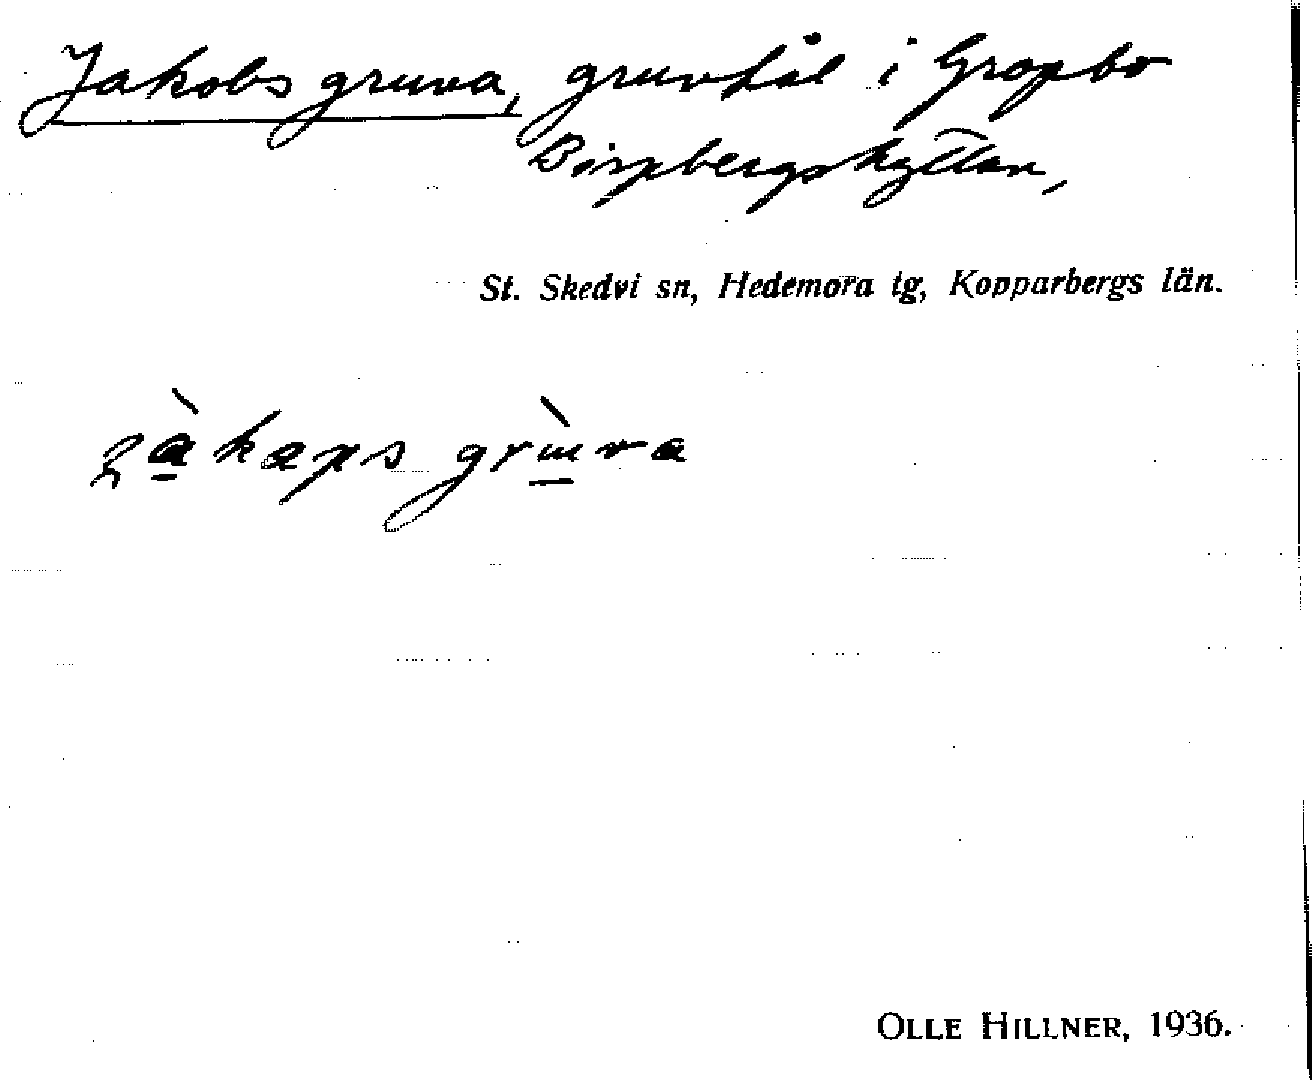 Jakobs gruva, gruvhål i Gropbo
Bispbergshyttan,
St. Skedvi sn, Hedemora tg, Kopparbergs län.
OLLE HILLNER, 1936.